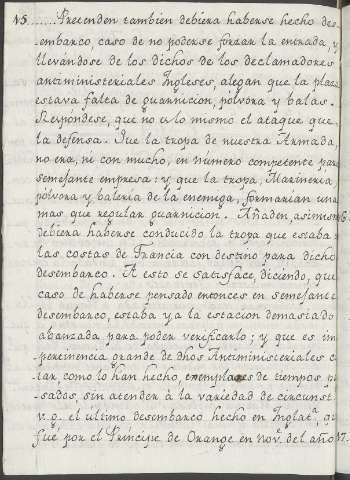 15.......Pretenden tambien debiera haberse hecho des-
-embarco, caso de no poderse forzar la entrada, y
llevándose de los dichos de los declamadores
antiministeriales Ingleses, alegan que la plaza
estava falta de guarnicion, pólvora y balas.
Respóndese, que no es lo mismo el ataque que
la defensa. Que la tropa de nuestra Armada
no era, ni con mucho, en número competente para
semejante empresa: y que la tropa, Marineria
pólvora y baleria de la enemiga, formarian una
mas que regular guarnicion. Añaden, asimismo
debiera haberse conducido la tropa que estaba
las costas de Francia con destino para dicho
desembarco. A esto se satisface, diciendo, que
caso de haberse pensado entonces en semejante
desembarco, estaba ya la estacion demasiado
abanzada para poder verificarlo; y que es im
pertinencia grande de dhos Antiministeriales ci
tar, como lo han hecho, exemplares de tiempos pa
sados, sin atender à la variedad de circunst.
v.g. el último desembarco hecho en Inglatª, qu
fué por el Príncipe de Orange en nov.e del año